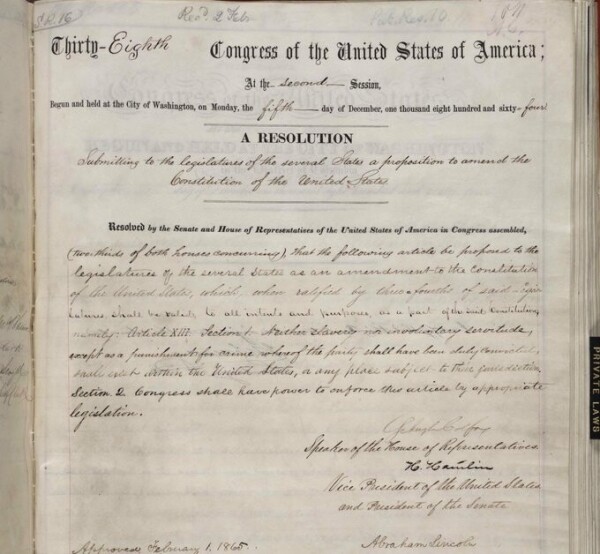 S.R. 16
Recd. 2 Feby
Pub. Res. 10
Thirty-Eighth Congress of the United States of America;
At the second Session,
Begun and held at the City of Washington, on Monday, the fifth day of December, one thousand eight hundred and sixty-four
A RESOLUTION
Submitting to the legislatures of the several States a proposition to amend the
Constitution of the United States
Resolved by the Senate and House of Representatives of the United States of America in Congress assembled,
(two thirds of both houses concurring), that the following article be proposed to the
legislatures of the several States as an amendment to the Constitution
of the United States, which, when ratified by three-fourths of said Legis-
latures, shall be valid, to all intents and purposes, as a part of the said Constitution,
namely: Article XIII. Section 1. Neither slavery nor involuntary servitude,
except as a punishment for crime whereof the party shall have been duly convicted,
shall exist within the United States, or any place subject to their jurisdiction,
Section 2. Congress shall have power to enforce this article by appropriate
legislation.
Schuyler Colfax
Speaker of the House of Representatives
H. Hamlin
Vice President of the United States
and President of the Senate
Approved February 1, 1865.
Abraham Lincoln
PRIVATE LAWS